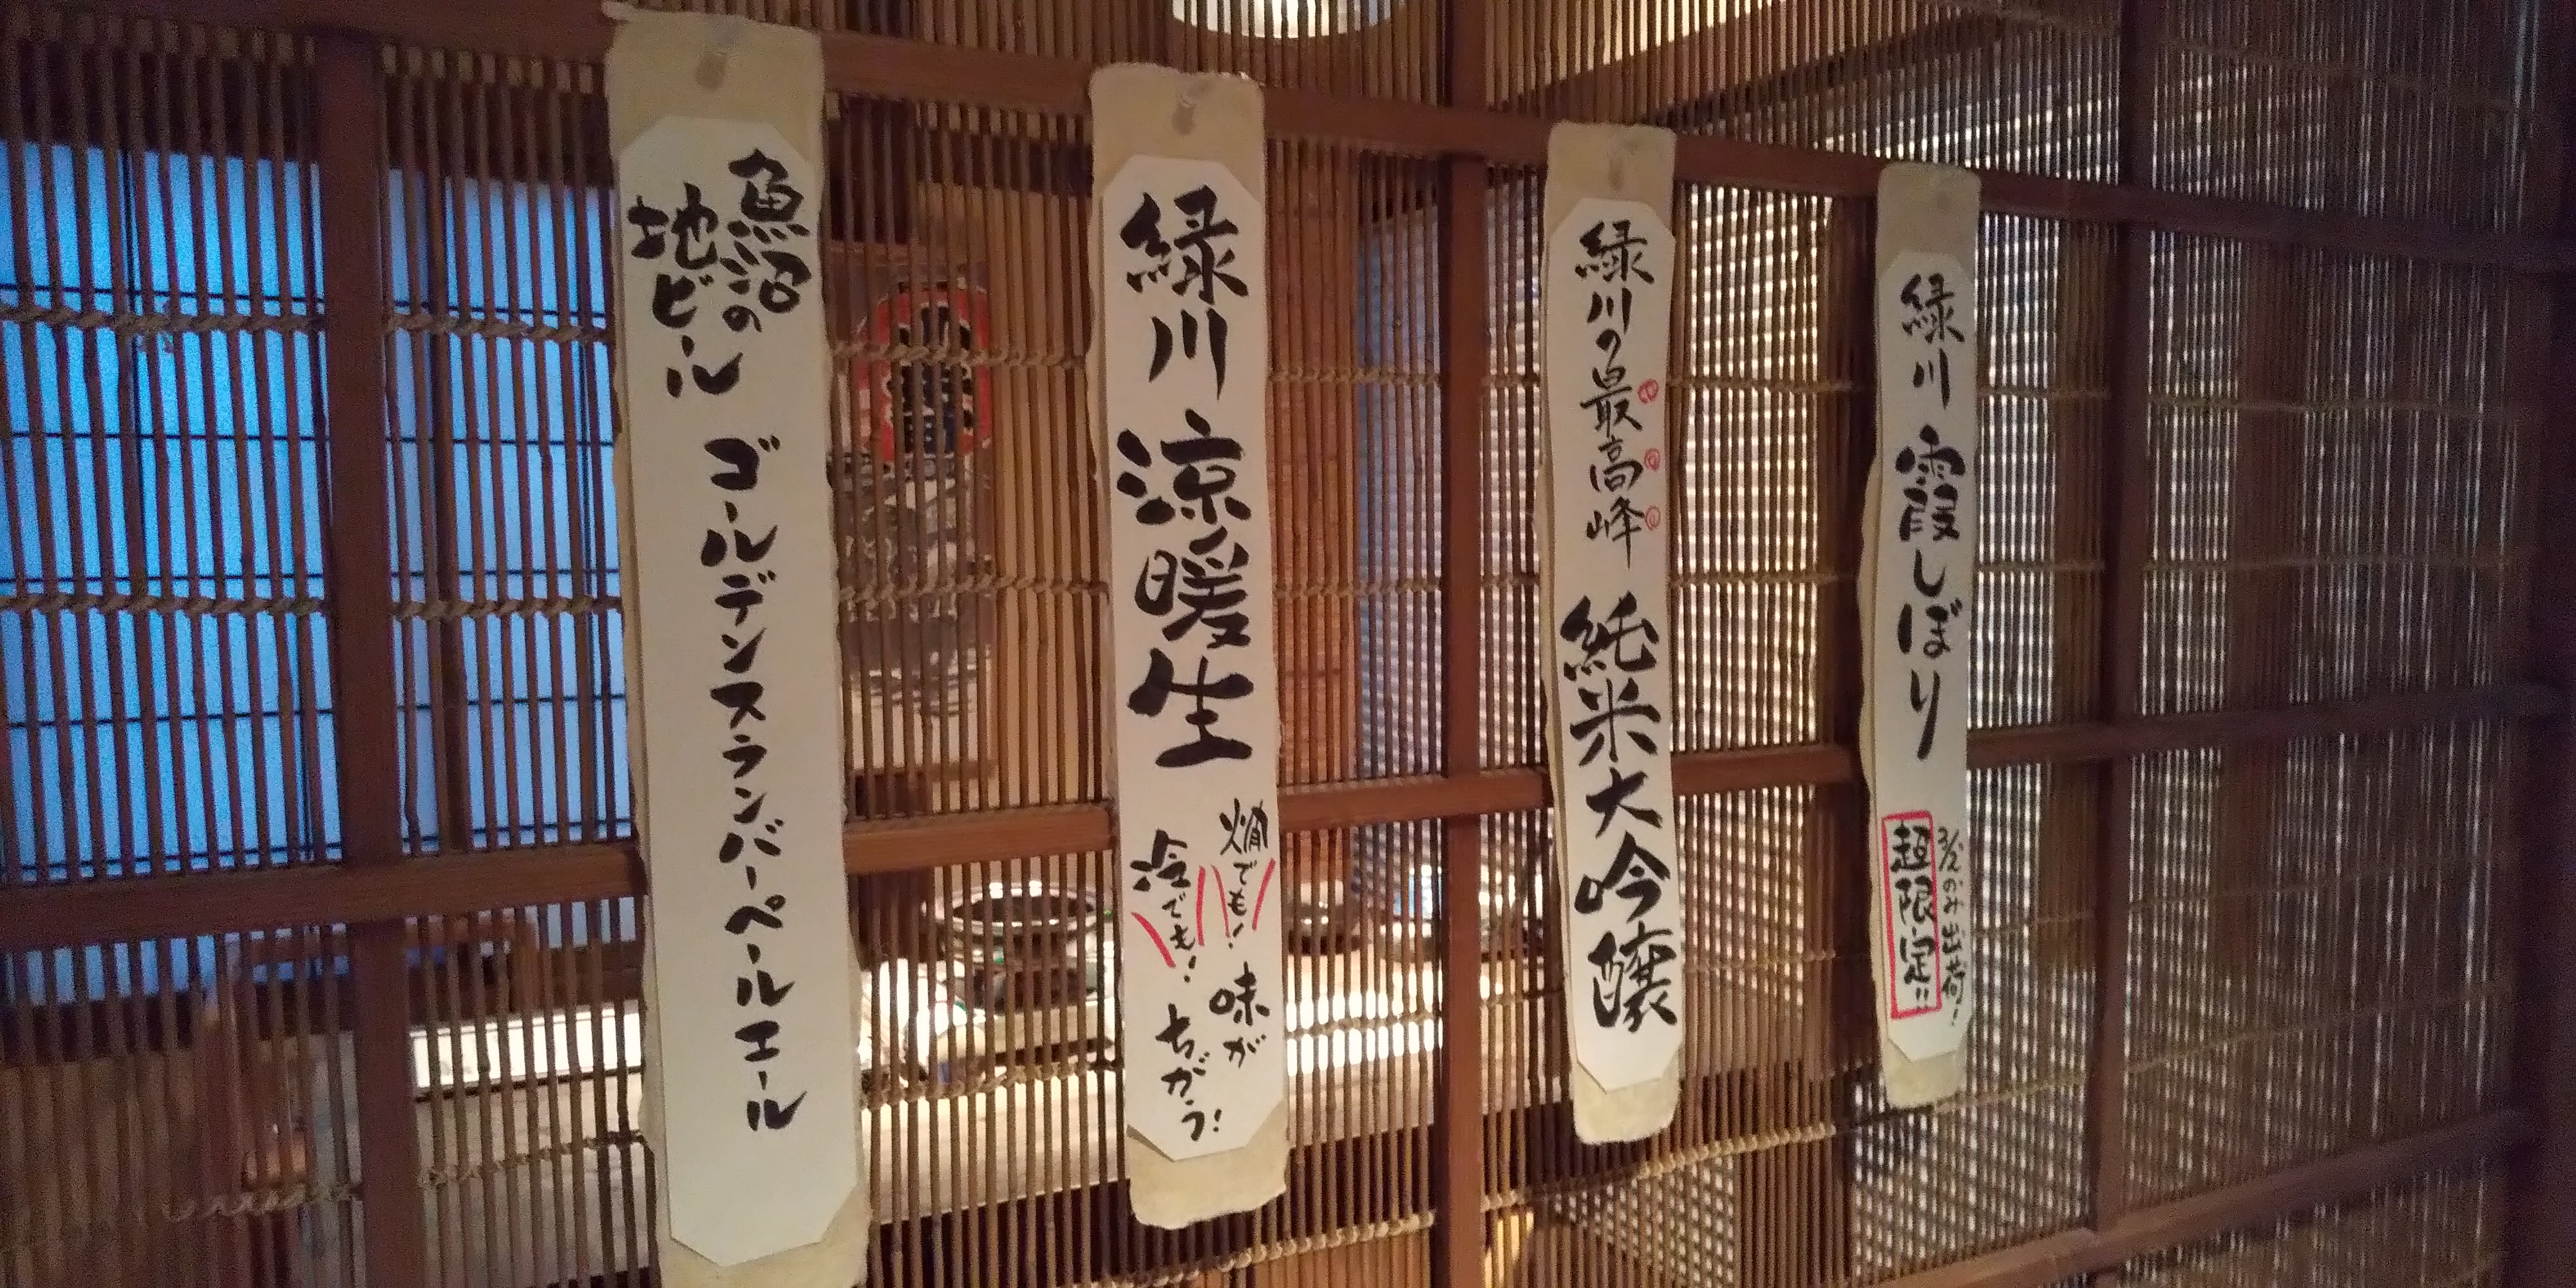 緑川 霞しぼり
3/2のみ出荷!
超限定!!
緑川の最高峰 純米大吟醸
緑川 涼暖生
燗でも! 味が
冷でも! ちがう!
魚沼の
地ビール
ゴールデンスランバーペールエール